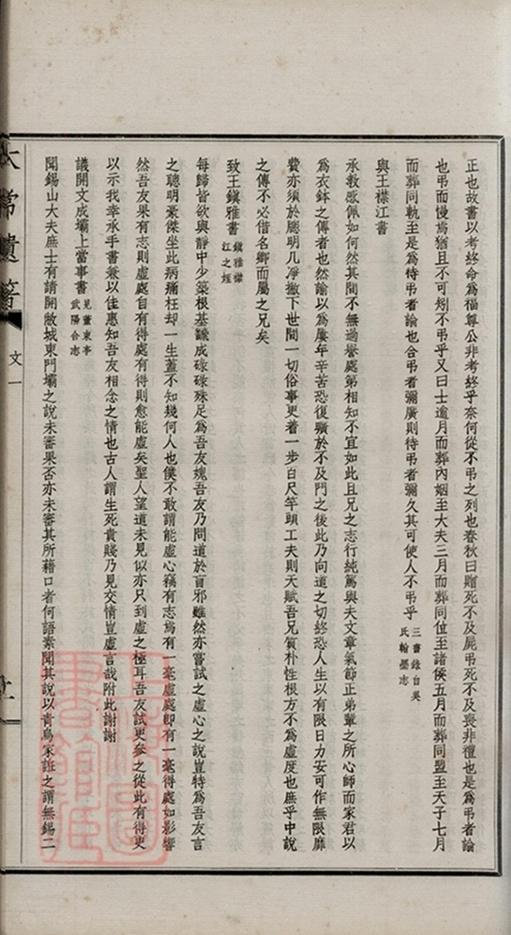 正也故書以考終命為福尊公非考終乎奈何從不弔之列也春秋曰贈死不及屍弔死不及喪非禮也是為弔者論
也弔而慢焉猶且不可矧不弔乎又曰士逾月而葬內姻至大夫三月而葬同位至諸侯五月而葬同盟至天子七月
而葬同軌至是為待弔者論也合弔者彌廣則待弔者彌久其可使人不弔乎
三書錄自吳
氏翰墨志
與王襟江書
承教感佩如何然其間不無過譽處第相知不宜如此且兄之志行純篤與夫文章氣節正弟輩之所心師而家君以
為衣鉢之傳者也然論以為屢年辛苦恐復曠於不及門之後此乃向道之切終恐人生以有限日力安可作無限靡
費亦須於聰明几凈撇下世間一切俗事更着一步白尺竿頭工夫則天賦吾兄質朴性根方不為虛度也庶乎中說
之傳不必借名鄉而屬之兄矣
致王鎮雅書
鎮雅襟
江之姪
每歸皆欲與靜中少築根基議成碌碌殊足為吾友媿吾友乃問道於盲邪雖然亦嘗試之虛心之說豈特為吾友言
之聰明豪傑坐此病痛枉却一生蓋不知幾何人也僕不敢謂能虛心竊有志焉有一毫虛處即有一毫得處如影響
然吾友果有志則虛處自有得處有得則愈能虛矣聖人望道未見似亦只到虛之極耳吾友試更參之從此有得更
以示我幸承手書兼以佳惠知吾友相念之情也古人謂生死貴賤乃見交情豈虛言哉附此謝謝
議開文成壩上當事書
見董東亭
武陽合志
聞錫山大夫庶士有請開敝城東門壩之說未審果否亦未審其所藉口者何語素聞其說以青烏家誑之謂無錫二
太常遺著
文一